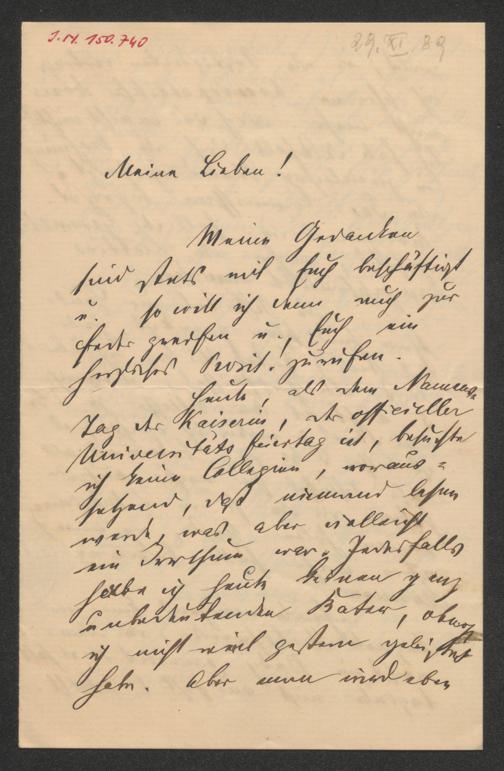 J.N. 150.740
29. XI. 89
Meine Lieben!
Meine Gedanken
sind stets mit Euch beschäftigt
u. so will ich denn auch zur
Feder greifen u., Euch ein
herzliches Prosit! zurufen.
Heute, als dem Namens-
Tag der Kaiserin, der officieller
Universitäts feiertag ist, besuchte
ich keine Collegien, voraus=
setzend, daß niemand lesen
werde, was aber vielleicht
ein Irrthum war. Jedesfalls
habe ich heute keinen ganz
unbedeutenden Kater, obwohl
ich nicht viel gestern geleistet
habe. Aber man wird eben